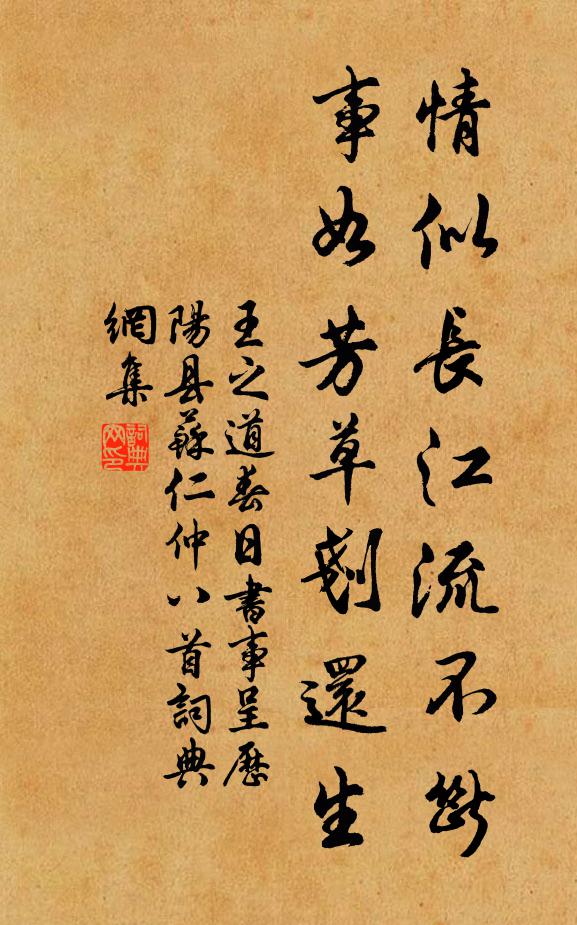 情似長江流不斷
事如芳草剗還生
王之道春日書事呈歷
陽县蘇仁仲八首詞典
網集
詞典網印